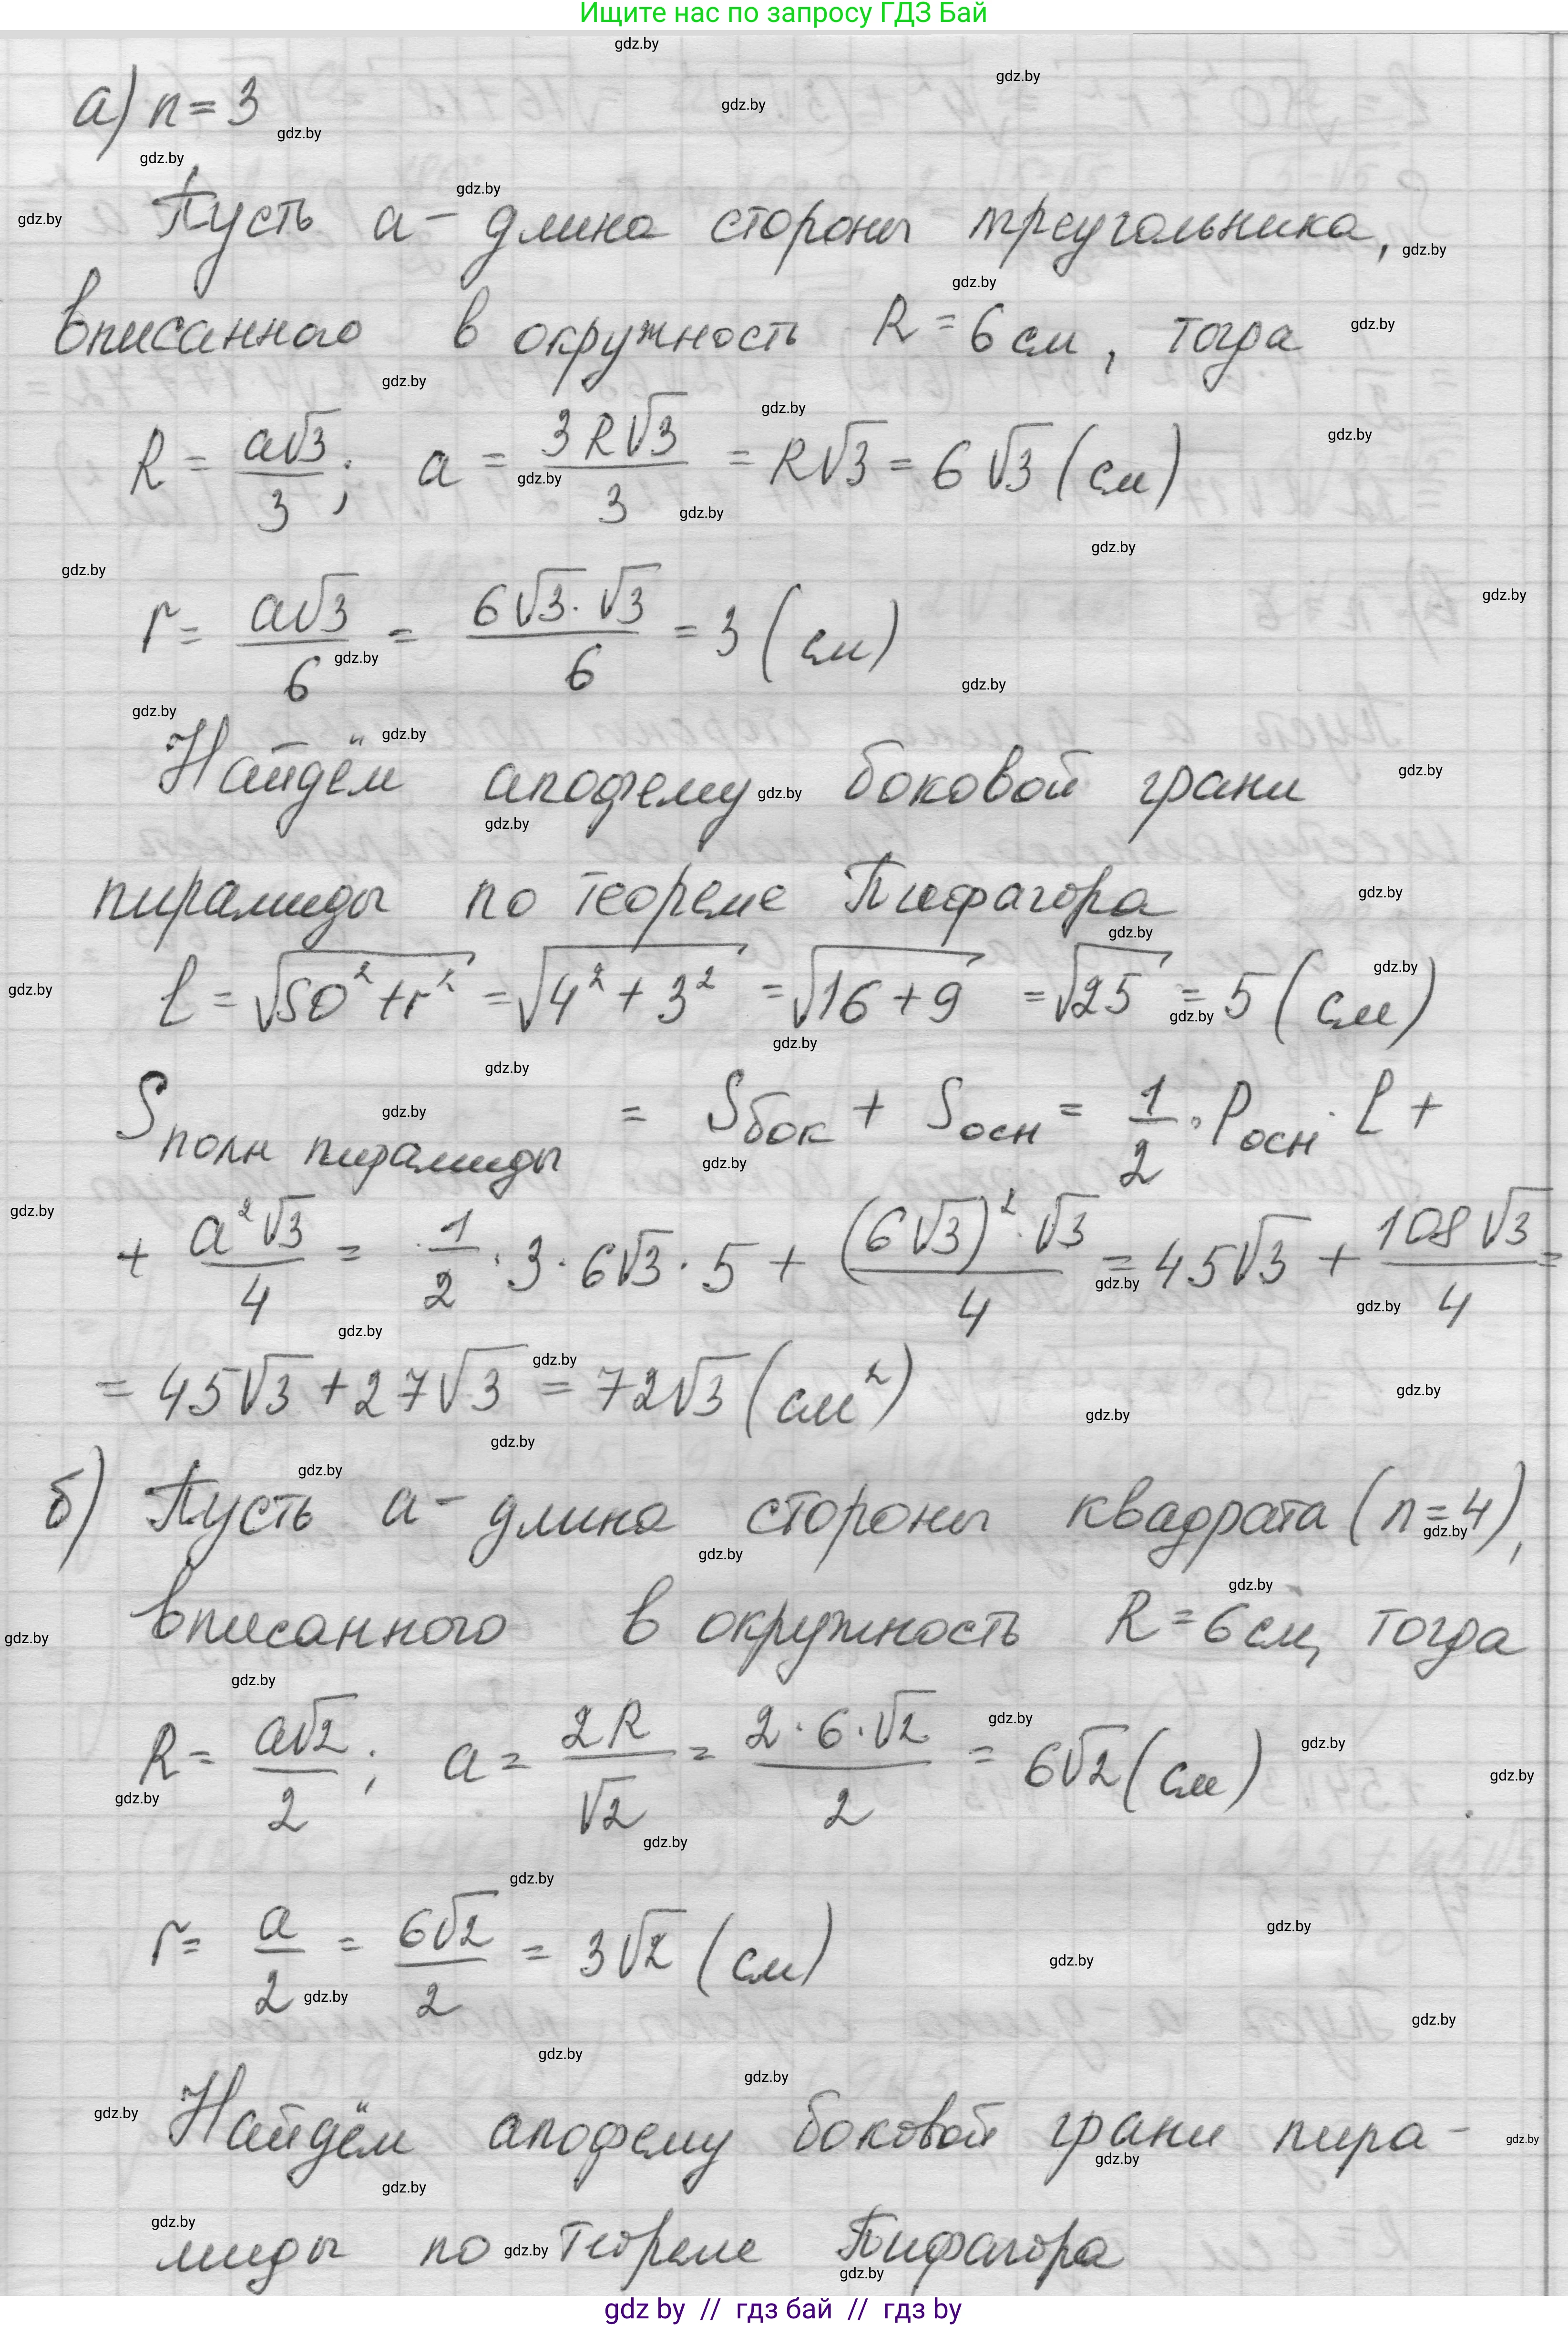 Ищите нас по запросу ГДЗ Бай
а) n = 3
Пусть a - длина стороны треугольника,
вписанного в окружность R = 6 см, тогда
R = a√3/3; a = 3R√3/3 = R√3 = 6√3 (см)
r = a√3/6 = 6√3·√3/6 = 3 (см)
Найдём апофему боковой грани
пирамиды по теореме Пифагора
l = √(SO² + r²) = √(4² + 3²) = √(16 + 9) = √25 = 5 (см)
S полн пирамиды = S бок + S осн = 1/2 · P осн · l +
+ a²√3/4 = 1/2 · 3 · 6√3 · 5 + (6√3)²·√3/4 = 45√3 + 108√3/4 =
= 45√3 + 27√3 = 72√3 (см²)
б) Пусть a - длина стороны квадрата (n = 4),
вписанного в окружность R = 6 см, тогда
R = a√2/2; a = 2R/√2 = 2·6·√2/2 = 6√2 (см)
r = a/2 = 6√2/2 = 3√2 (см)
Найдём апофему боковой грани пира-
миды по теореме Пифагора
gdz by // гдз бай // гдз by